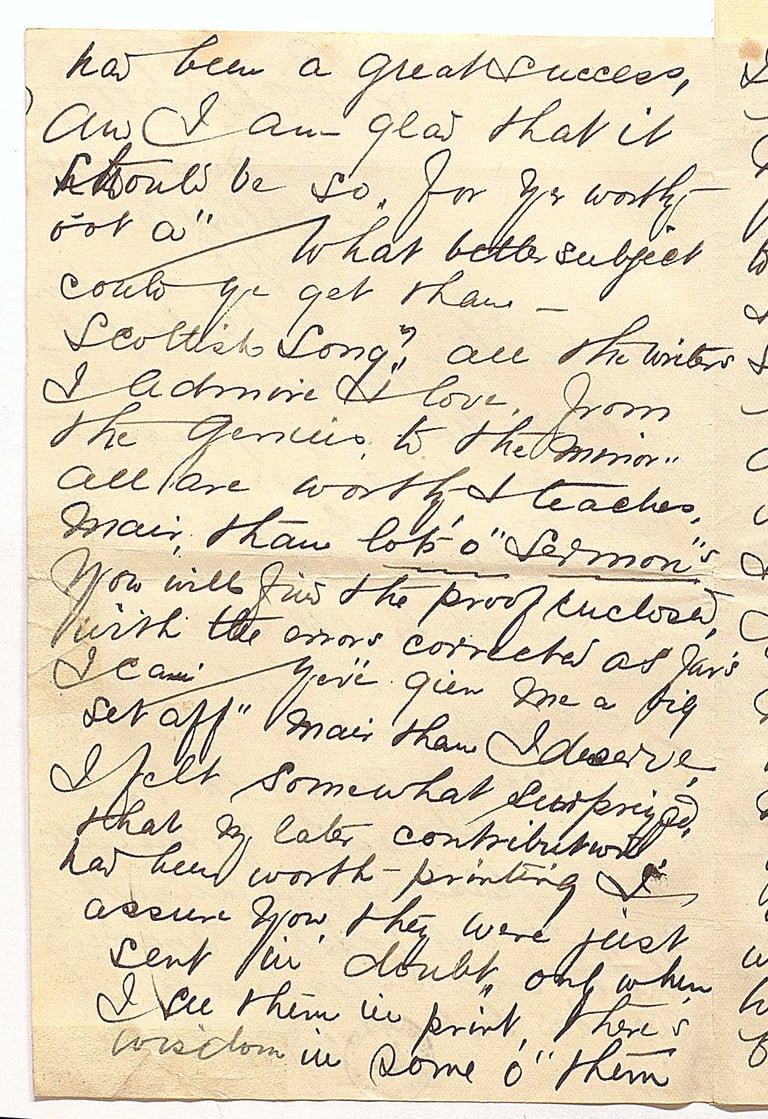 had been a great success,
and I am glad that it
should be so, for yer worthy
o't a" What better subject
could ye get than —
Scottish Song? all the writers
I admire & love, from
the Genius, to the minor"
all are worthy & teaches,
mair, than lots o" Sermon"s
You will find the proof enclosed,
with the errors corrected as far's
I can Yer'e gien me a big
set aff" mair than I deserve,
I felt somewhat surprized,
that my later contributions
had been worth printing I
assure you, they were just
sent in doubt, only when
I see them in print, there's
wisdom in some o" them